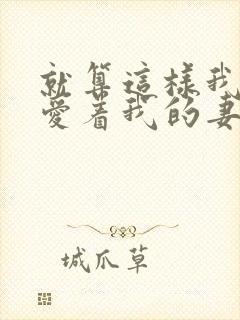 就算這樣我
愛着我的妻
城爪草